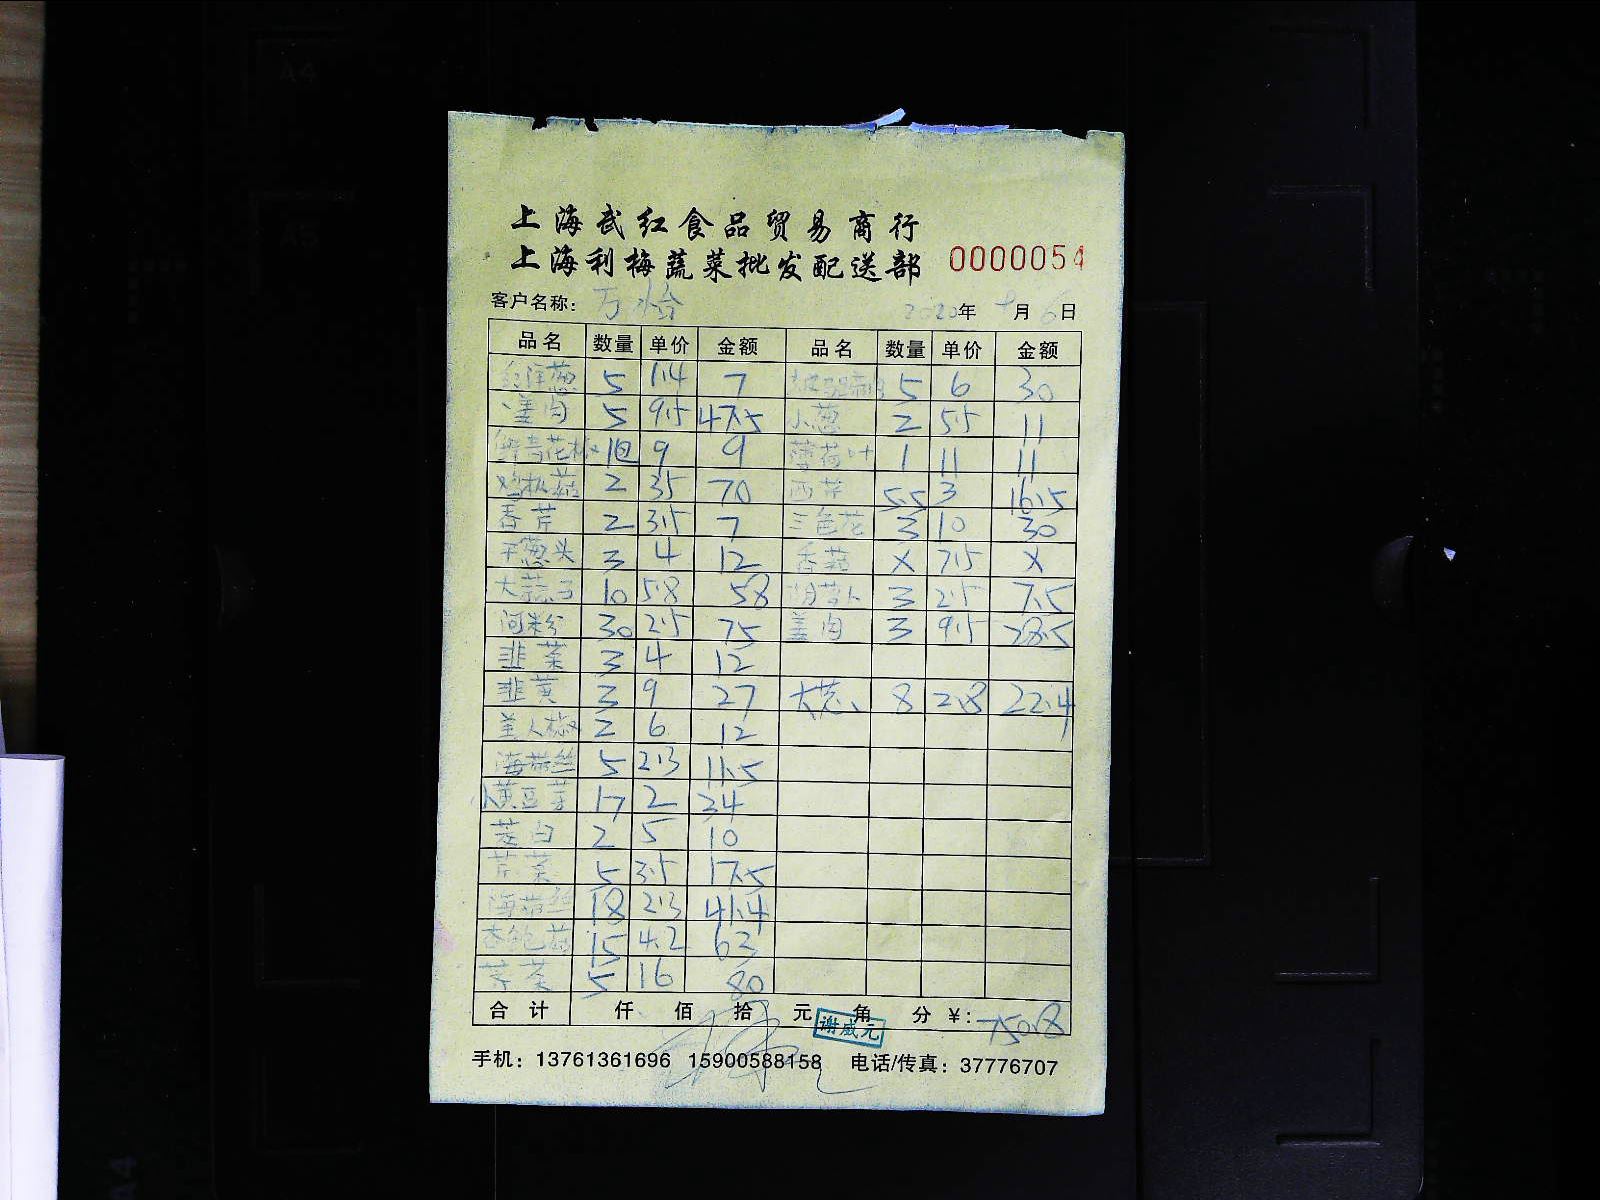 上海武红食品贸易商行
上海利梅蔬菜批发配送部 0000054
客户名称: 万怡 2020年 月 6日
品名 数量 单价 金额 品名 数量 单价 金额
红洋葱 5 1.4 7 5 6 30
姜肉 5 9.5 47.5 小葱 2 5.5 11
鲜青花椒 1包 9 9 薄荷叶 1 11 11
鸡枞菇 2 35 70 西芹 5.5 3 16.5
香芹 2 3.5 7 三色花 3 10 30
干葱头 3 4 12 香菇 X 7.5 X
大蒜子 10 5.8 58 胡萝卜 3 2.5 7.5
河粉 30 2.5 75 姜肉 3 9.5 28.5
韭菜 3 4 12
韭黄 3 9 27 大葱 8 2.8 22.4
美人椒 2 6 12
海带丝 5 2.3 11.5
小黄豆芽 17 2 34
茭白 2 5 10
芹菜 5 3.5 17.5
海带丝 18 2.3 41.4
杏鲍菇 15 4.2 63
5 16 80
合计 仟 佰 拾 元 角 分 ¥: 750.8
谢威元
手机: 13761361696 15900588158 电话/传真: 37776707